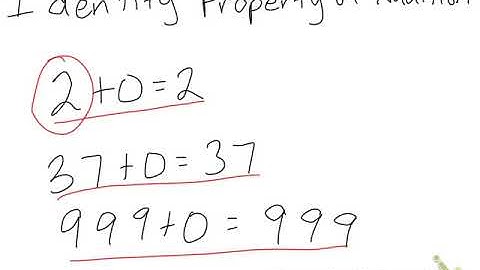 Identity Property of Addition
2+0=2
37+0=37
999+0=999